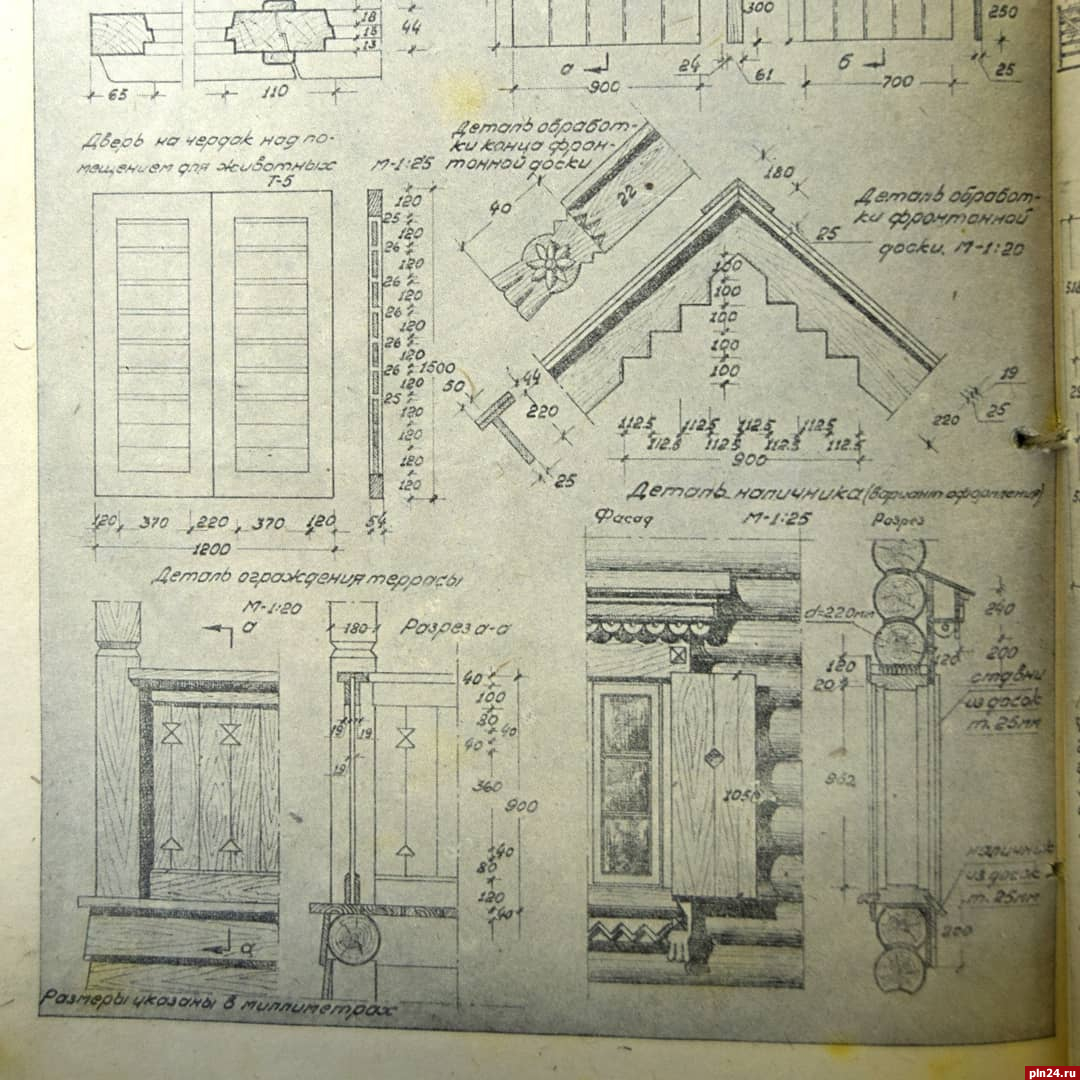 18
15
13
44
65
110
300
24
61
а
900
250
б
700
25
Дверь на чердак над по-
мещением для животных
Т-5
М-1:25
120
25
120
26
120
26
120
26
120
26
120
26
120
25
120
120
180
120
1500
120 370 220 370 120
1200
54
Деталь обработ-
ки конца фрон-
тонной доски
40
22
180
25
Деталь обработ-
ки фронтонной
доски. М-1:20
100
100
100
100
100
112.5 112.5 112.5 112.5
112.5 112.5 112.5 112.5
900
50
44
220
25
19
25
220
Деталь наличника (вариант оформления)
Фасад М-1:25 Разрез
d=220мм
240
120
200
120
20
ставни
из досок
т. 25мм
952
105
наличник
из досок
т. 25мм
200
Деталь ограждения террасы
М-1:20
а
180
Разрез а-а
40
100
80
40
40
19
19
19
360
900
40
80
120
40
а
Размеры указаны в миллиметрах
pln24.ru